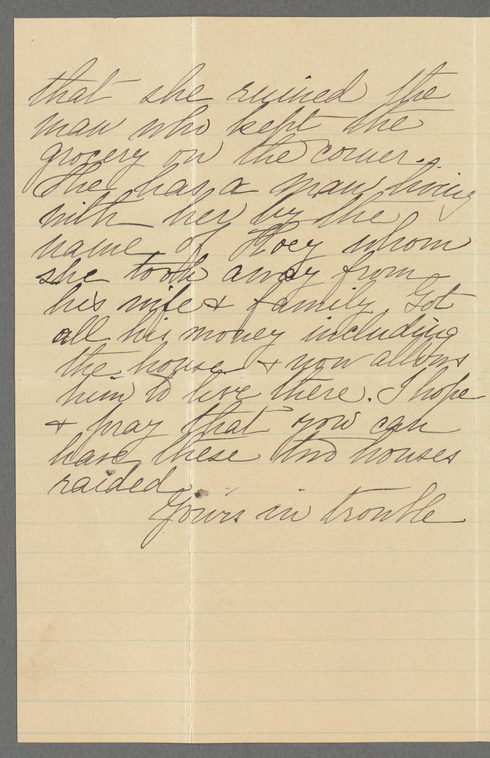 that she ruined the
man who kept the
grocery on the corner.
She has a man living
with her by the
name of Hoey whom
she took away from
his wife & family Got
all his money including
the house & now allows
him to live there. I hope
& pray that you can
have these two houses
raided
Yours in trouble